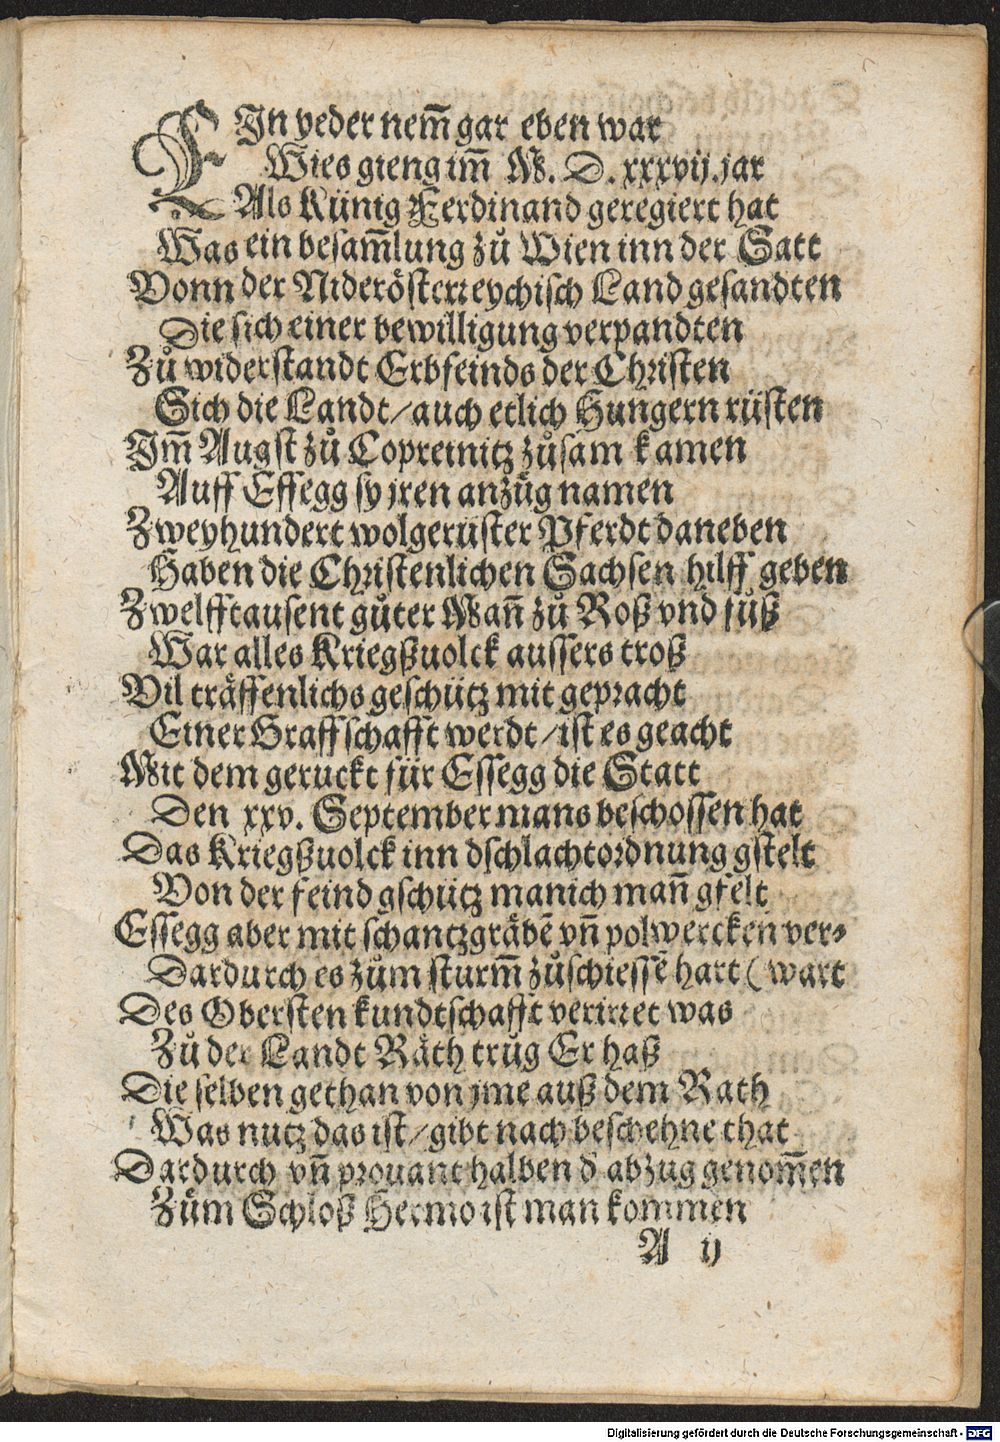 EIn yeder nem̃ gar eben war
Wies gieng im̃ M. D. xxxvij. jar
Als Künig Ferdinand geregiert hat
Was ein besam̃lung zů Wien inn der Satt
Vonn der Niderösterreychisch Land gesandten
Die sich einer bewilligung verpandten
Zů widerstandt Erbfeinds der Christen
Sich die Landt / auch etlich Hungern rüsten
Im̃ Augst zů Copreinitz zůsam kamen
Auff Essegg sy jren anzůg namen
Zweyhundert wolgerüster Pferdt daneben
Haben die Christenlichen Sachsen hilff geben
Zwelfftausent gůter Mañ zů Roß vnd fůß
War alles Kriegßuolck aussers troß
Vil träffenlichs geschütz mit gepracht
Einer Graffschafft werdt / ist es geacht
Mit dem geruckt für Essegg die Statt
Den xxv. September mans beschossen hat
Das Kriegßuolck inn dschlachtordnung gstelt
Von der feind gschütz manich mañ gfelt
Essegg aber mit schantzgräbẽ vñ polwercken ver⸗
Dardurch es zům sturm̃ zůschiessẽ hart ( wart
Des Obersten kundtschafft verirret was
Zů der Landt Räth trůg Er haß
Die selben gethan von jme auß dem Rath
Was nutz das ist / gibt nach beschehne that
Dardurch vñ prouant halben d̕ abzug genom̃en
Zům Schloß Hermo ist man kommen
A ij
Digitalisierung gefördert durch die Deutsche Forschungsgemeinschaft - DFG